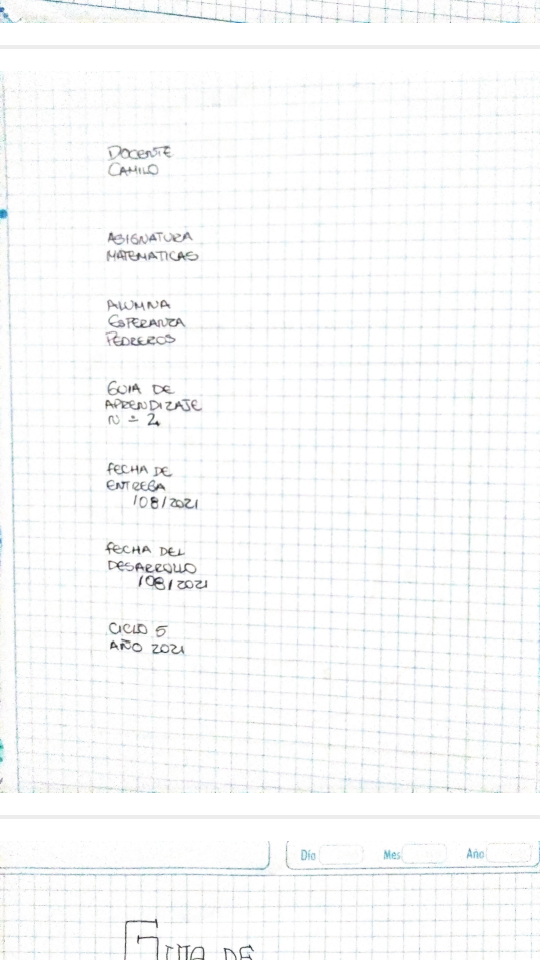 DOCENTE
CAMILO
ASIGNATURA
MATEMATICAS
ALUMNA
ESPERANZA
PEDREROS
GUIA DE
APRENDIZAJE
N = 2
FECHA DE
ENTREGA
/08/2021
FECHA DEL
DESARROLLO
/08/2021
CICLO 5
AÑO 2021
Día Mes Año
GUIA DE